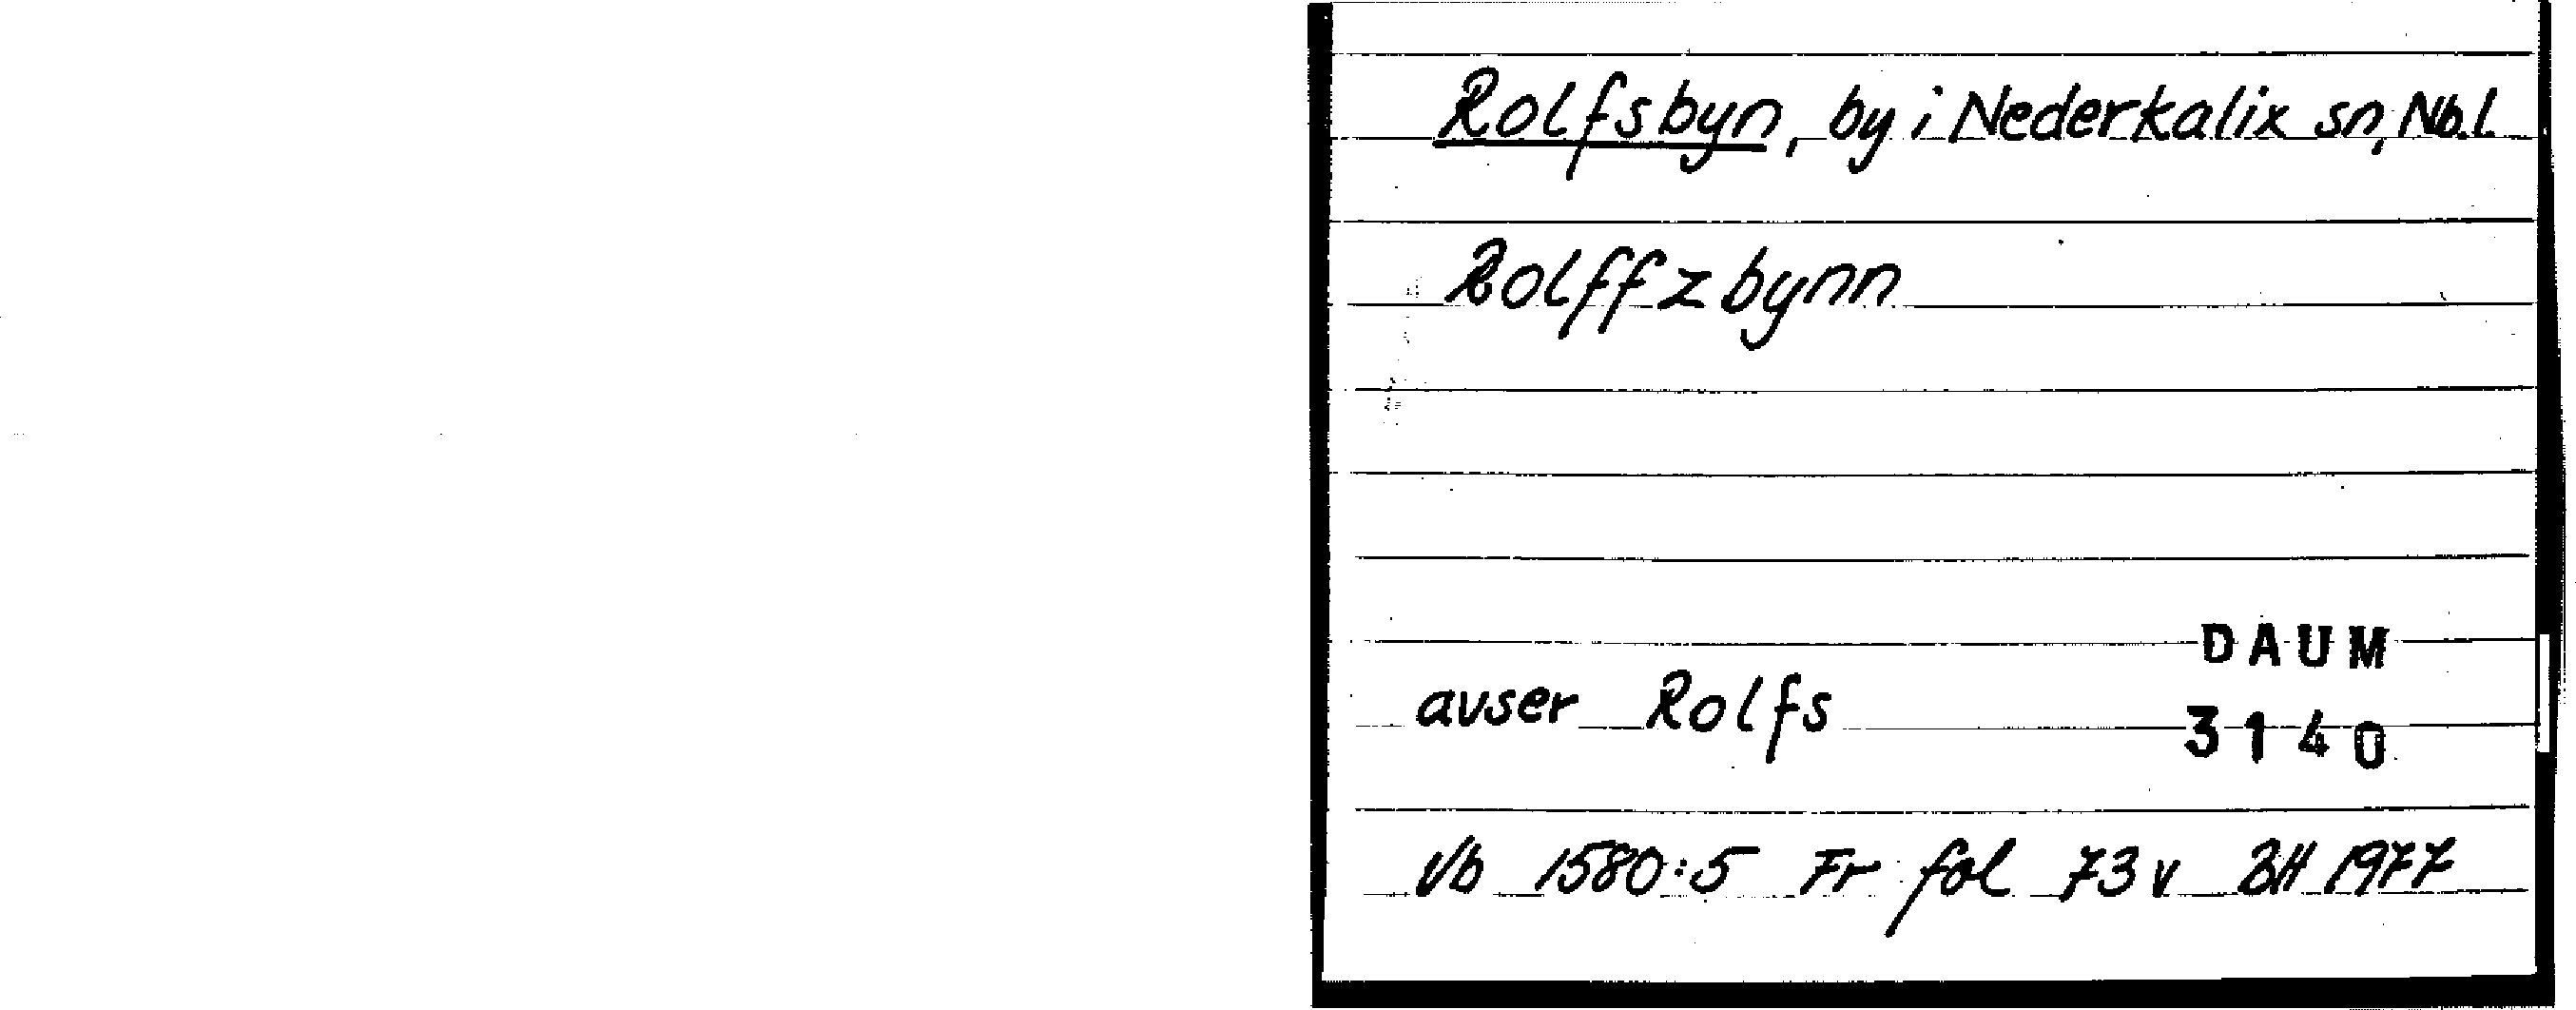 Rolfsbyn, by i Nederkalix sn, Nb.l.
Rolffzbynn
DAUM
avser Rolfs
3140
Vb 1580:5 Fr fol 73v BH 1977